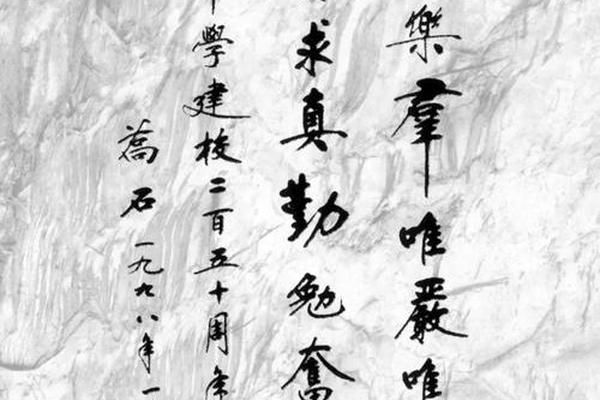 樂羣唯嚴唯
求真勤勉奮
學建校二百五十周年
喬石一九九八年一